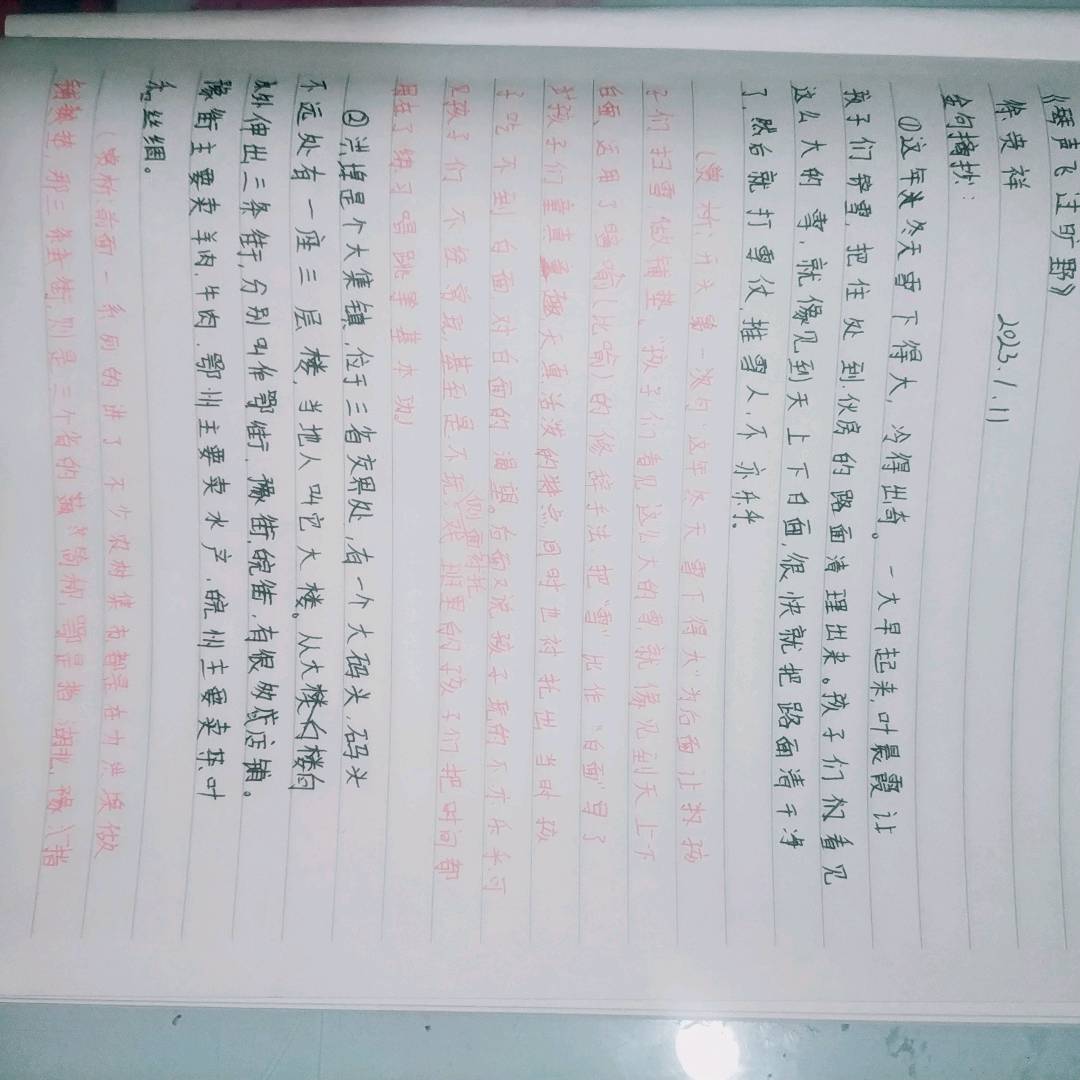 《琴声飞过旷野》
徐贵祥 2023.1.11
金句摘抄:
①这年冬天雪下得大,冷得出奇。一大早起来,叶晨霞让
孩子们铲雪,把住处到伙房的路面清理出来。孩子们看见
这么大的雪,就像见到天上下白面,很快就把路面清干净
了,然后就打雪仗、推雪人,不亦乐乎。
(赏析:开头第一次句"这年冬天雪下得大"为后面让教孩
子们扫雪做铺垫、"孩子们看见这么大的雪,就像见到天上下
白面,运用了暗喻(比喻)的修辞手法把"雪"比作"白面"写了
对孩子们童真童趣天真活泼的特点同时也衬托出当时孩
子吃不到白面对白面的渴望。后面又说孩子玩的不亦乐乎可
见孩子们不经常玩,甚至是不玩戏班里的孩子们把时间都
侧面衬托
用在了练习唱跳等基本功)
②洪埠是个大集镇,位于三省交界处,有一个大码头,码头
不远处有一座三层楼,当地人叫它大楼。从大楼向
外伸出三条街,分别叫作鄂街、豫街、皖街,有很多店铺。
豫街主要卖羊肉、牛肉,鄂州主要卖水产,皖州主要卖茶叶
和丝绸。
(赏析:前面一系列的讲了不少农村集市都是在为洪埠做
铺垫,那三条主街,则是三个省的简称,鄂是指湖北,豫指